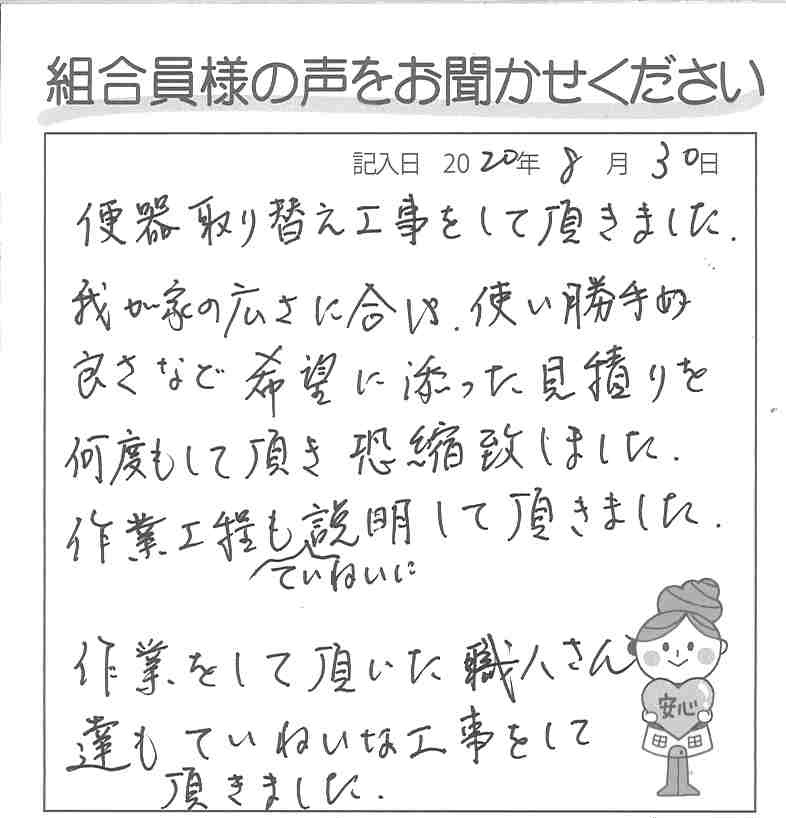 組合員様の声をお聞かせください
記入日 2020年 8月 30日
便器取り替え工事をして頂きました.
我が家の広さに合い、使い勝手の
良さなど希望に添った見積りを
何度もして頂き恐縮致しました.
作業工程も説明して頂きました.
ていねいに
作業をして頂いた職人さん
達もていねいな工事をして
頂きました.
安心